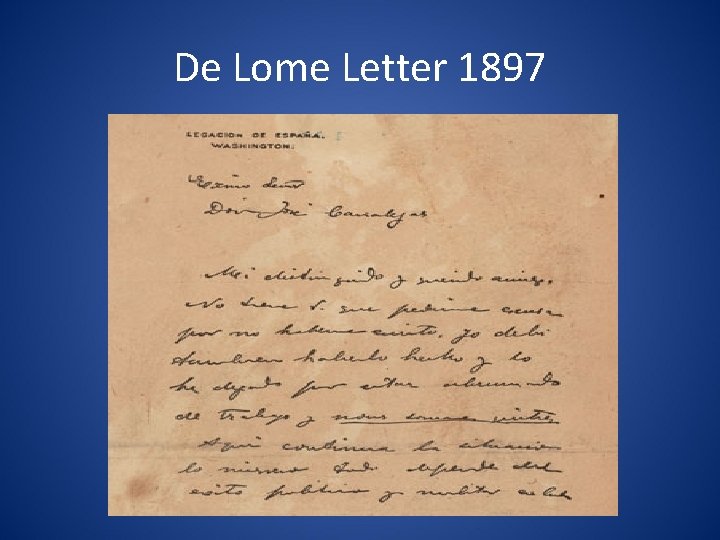 De Lome Letter 1897
LEGACION DE ESPAÑA.
WASHINGTON.
Exmo Señor
Don José Canalejas
Mi distinguido y querido amigo.
No tiene V. que pedirme excusa
por no haberme escrito, yo debi
tambien haberlo hecho y lo
he dejado por estar abrumado
de trabajo y nous sommes quittes
Aqui continua la situacion
lo mismo todo depende del
exito politico y militar en Cuba